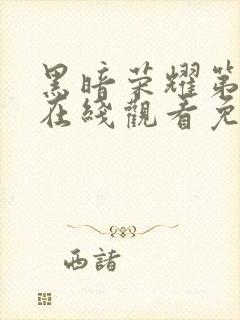 黑暗荣耀第
在线觀看免
西諸